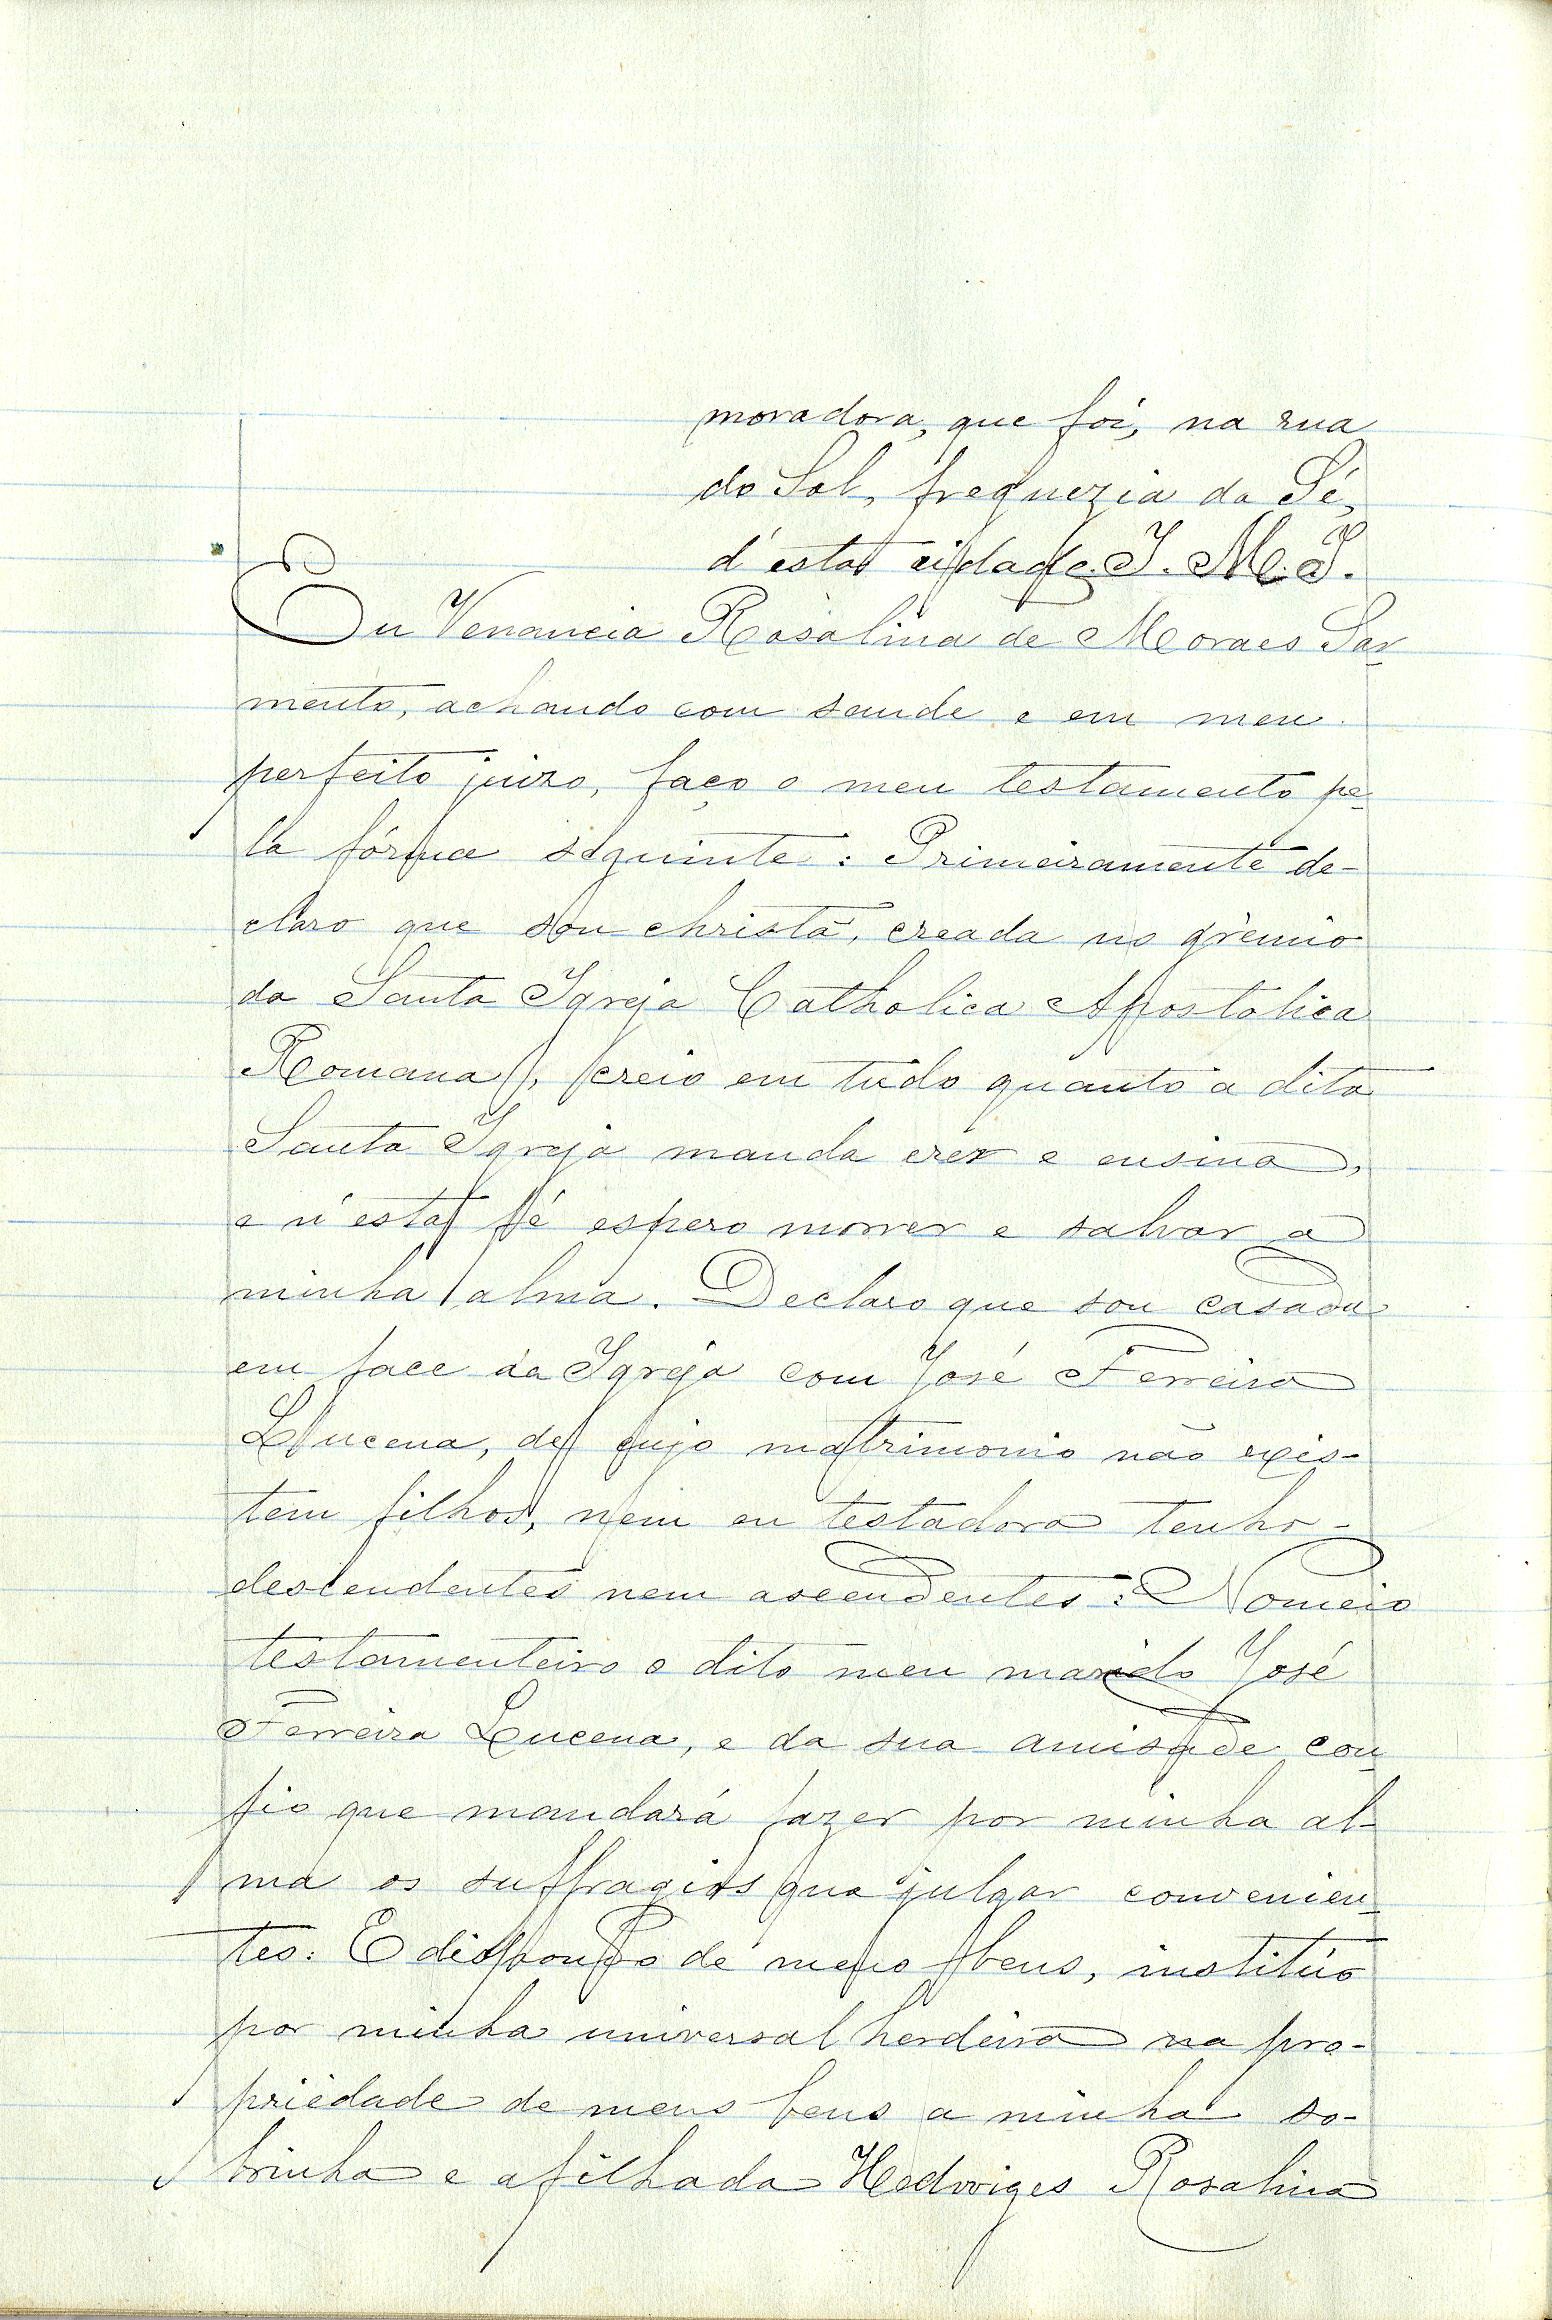 moradora, que foi, na rua
do Sol, freguezia da Sé,
d'esta cidade. J. M. J.
Eu Venancia Rosalina de Moraes Sar-
mento, achando com saude e em meu
perfeito juizo, faço o meu testamento pe-
la fórma seguinte: Primeiramente de-
claro que sou christã, creada no grèmio
da Santa Igreja Catholica Apostolica
Romana, creio em tudo quanto a dita
Santa Igreja manda crer e ensina,
e n'esta fé espero morrer e salvar a
minha alma. Declaro que sou casada
em face da Igreja com José Ferreira
Lucena, de cujo matrimonio não exis-
tem filhos, nem eu testadora tenho -
descendentes nem ascendentes: Nomeio
testamenteiro o dito meu marido José
Ferreira Lucena, e da sua amisade con-
fio que mandará fazer por minha al-
ma os suffragios que julgar convenien-
tes: E dispondo de meus bens, institúo
por minha universal herdeira na pro-
priedade de meus bens a minha so-
brinha e afilhada Hedwiges Rosalina